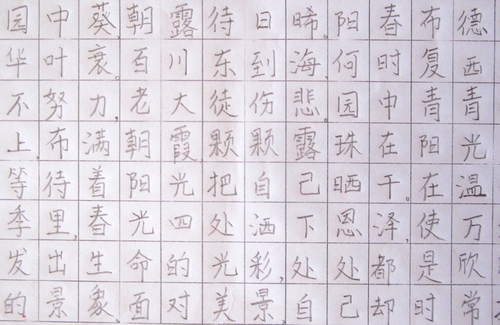 园中葵,朝露待日晞。阳春布德
华叶衰。百川东到海,何时复西
不努力,老大徒伤悲。园中青青
上,布满朝霞,颗颗露珠在阳光
等待着阳光把自己晒干。在温
季里,春光四处洒下恩泽,使万
发出生命的光彩,处处都是欣
的景象。面对美景,自己却时常